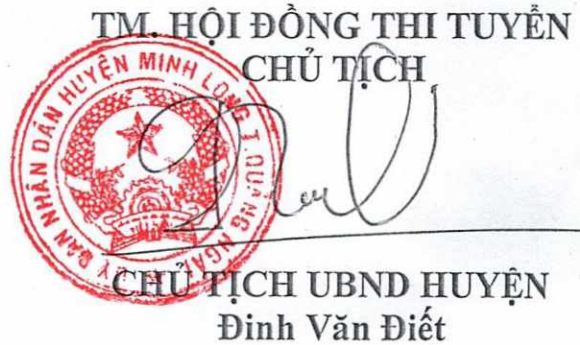 TM. HỘI ĐỒNG THI TUYỂN
CHỦ TỊCH
ỦY BAN NHÂN DÂN HUYỆN MINH LONG T. QUẢNG NGÃI
CHỦ TỊCH UBND HUYỆN
Đinh Văn Điết